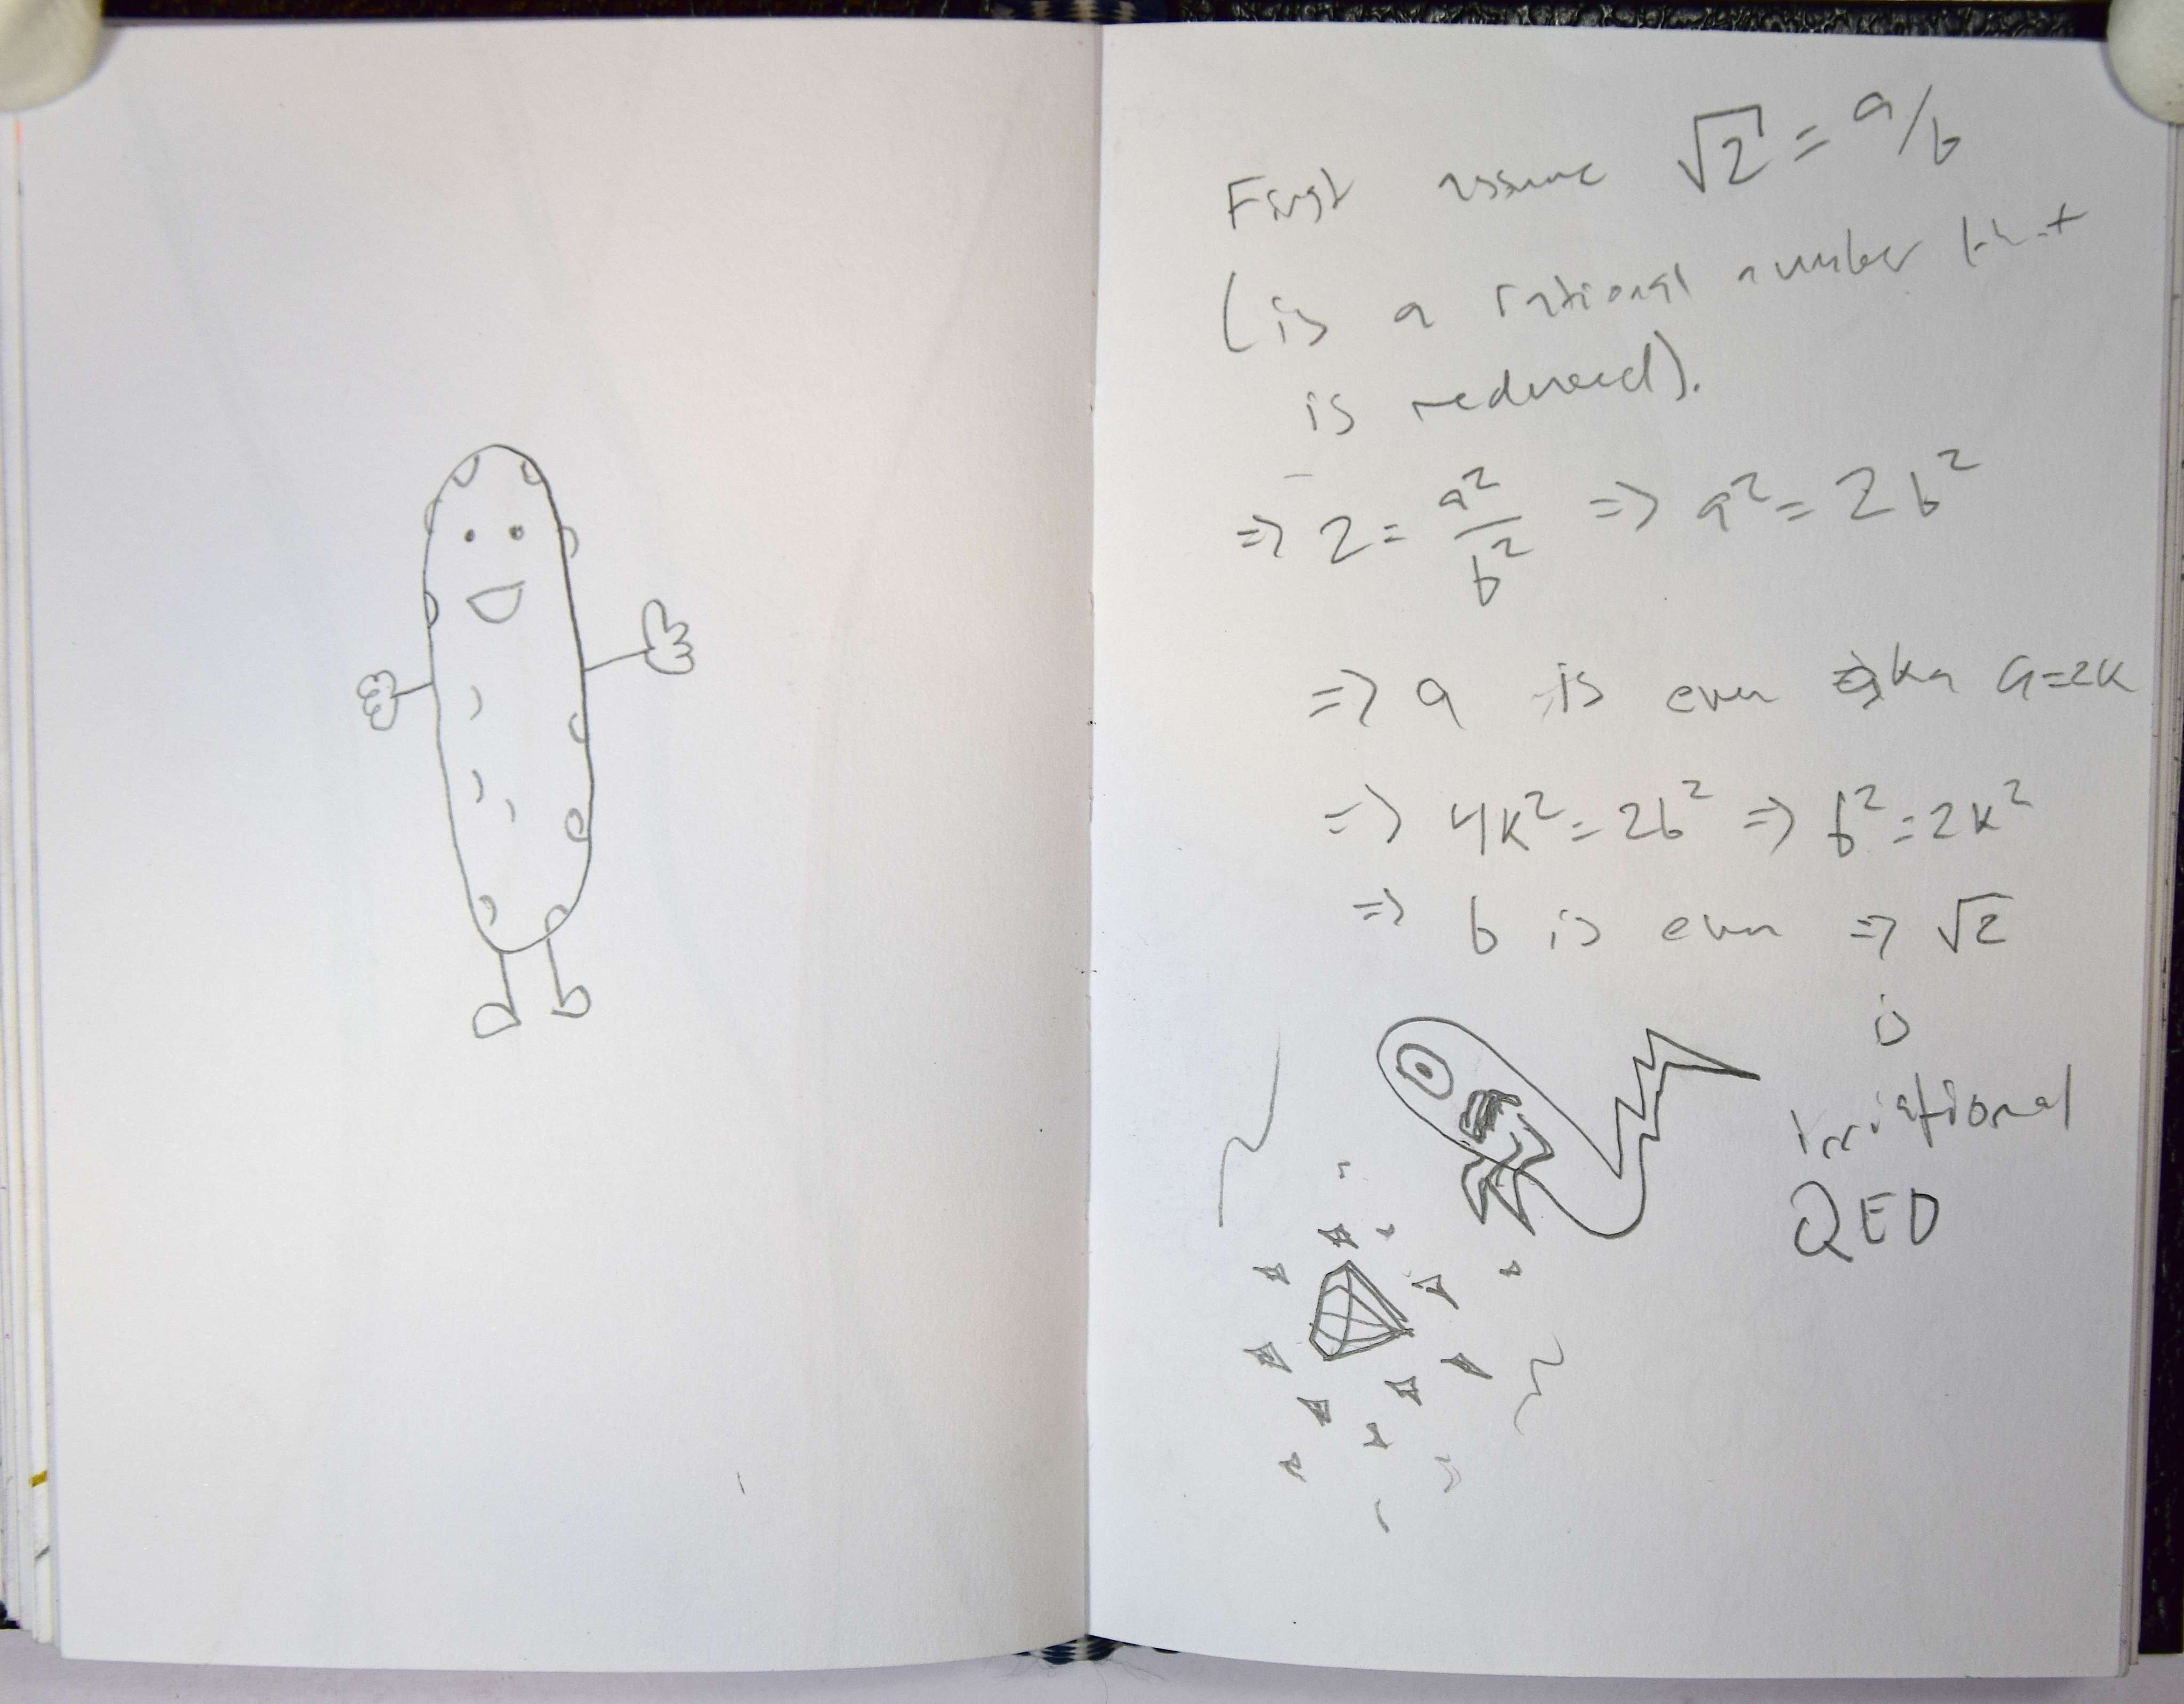 First assume √2 = a/b
(is a rational number that
is reduced).
=> 2 = a²/b² => a² = 2b²
=> a is even aka a=2k
=> 4k² = 2b² => b² = 2k²
=> b is even => √2
is
irrational
QED